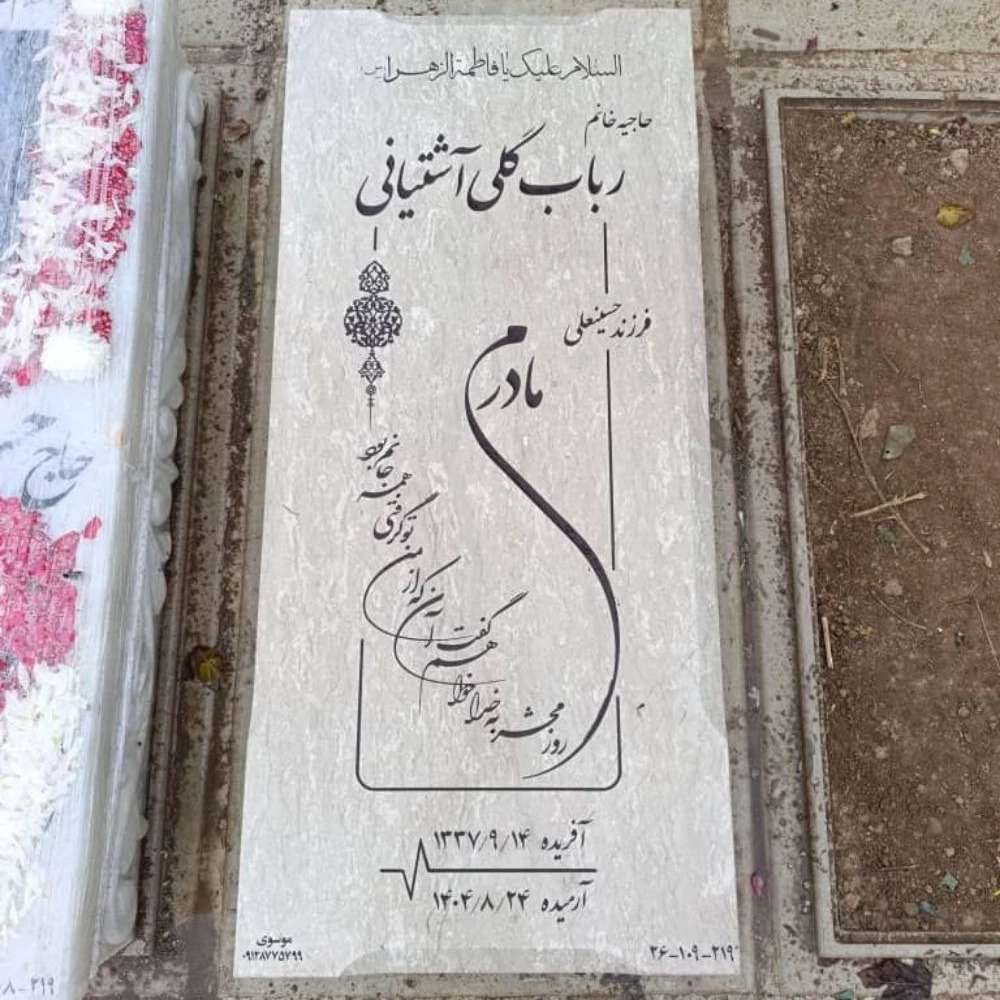 السلام علیک یا فاطمة الزهرا (س)
حاجیه خانم
رباب گلی آشتیانی
فرزند حسینعلی
مادرم
روز محشر به خدا خواهم گفت
آن که از من تو گرفتی همه جانم بود
آفریده ۱۳۳۷/۹/۱۴
آرمیده ۱۴۰۴/۸/۲۴
موسوی
۰۹۱۲۸۷۷۵۷۹۹
۲۶-۱۰۹-۲۱۹
حاج
۸-۲۱۹